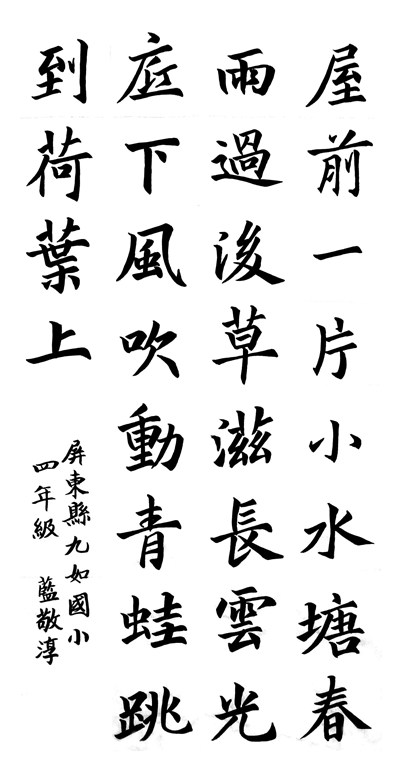 屋前一片小水塘春
雨過後草滋長雲光
庭下風吹動青蛙跳
到荷葉上
屏東縣九如國小
四年級 藍敬淳